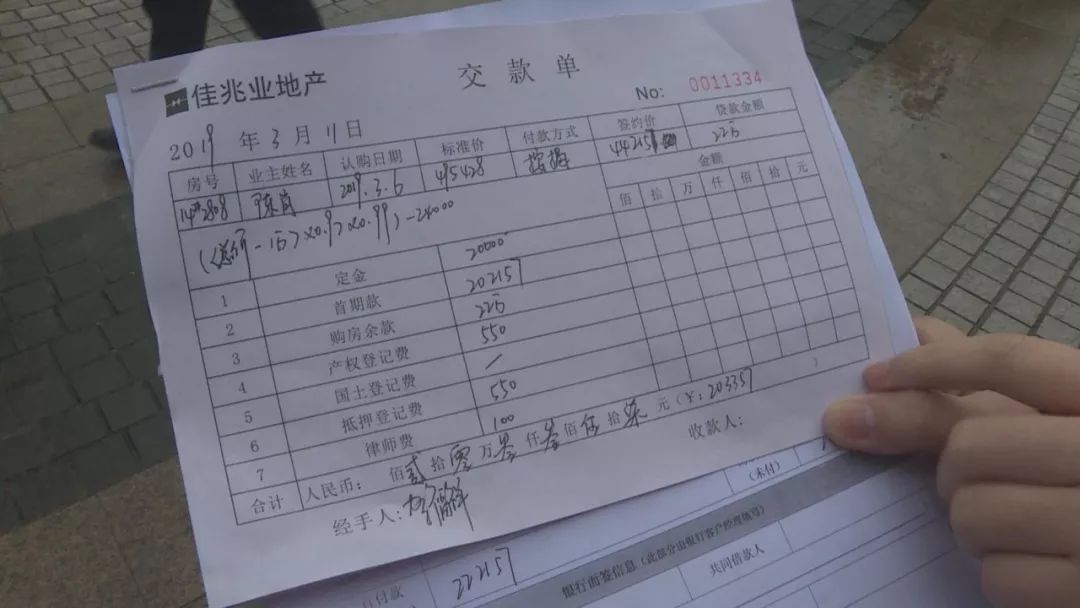 佳兆业地产
交款单
No: 0011334
2019 年 3 月 11 日
房号 业主姓名 认购日期 标准价 付款方式 签约价 贷款金额
2808 2019.3.6 415428 按揭 22万
金额
佰 拾 万 仟 佰 拾 元
-24000
1 定金 20000
2 首期款 202157
3 购房余款 22万
4 产权登记费 550
5 国土登记费 /
6 抵押登记费 550
7 律师费 100
合计 人民币： 佰 贰 拾 零 万 叁 仟 叁 佰 伍 拾 柒 元（¥：203357 ）
经手人： 收款人：
（未付）
银行面签信息（此部分由银行客户经理填写）
共同借款人
付款 222157